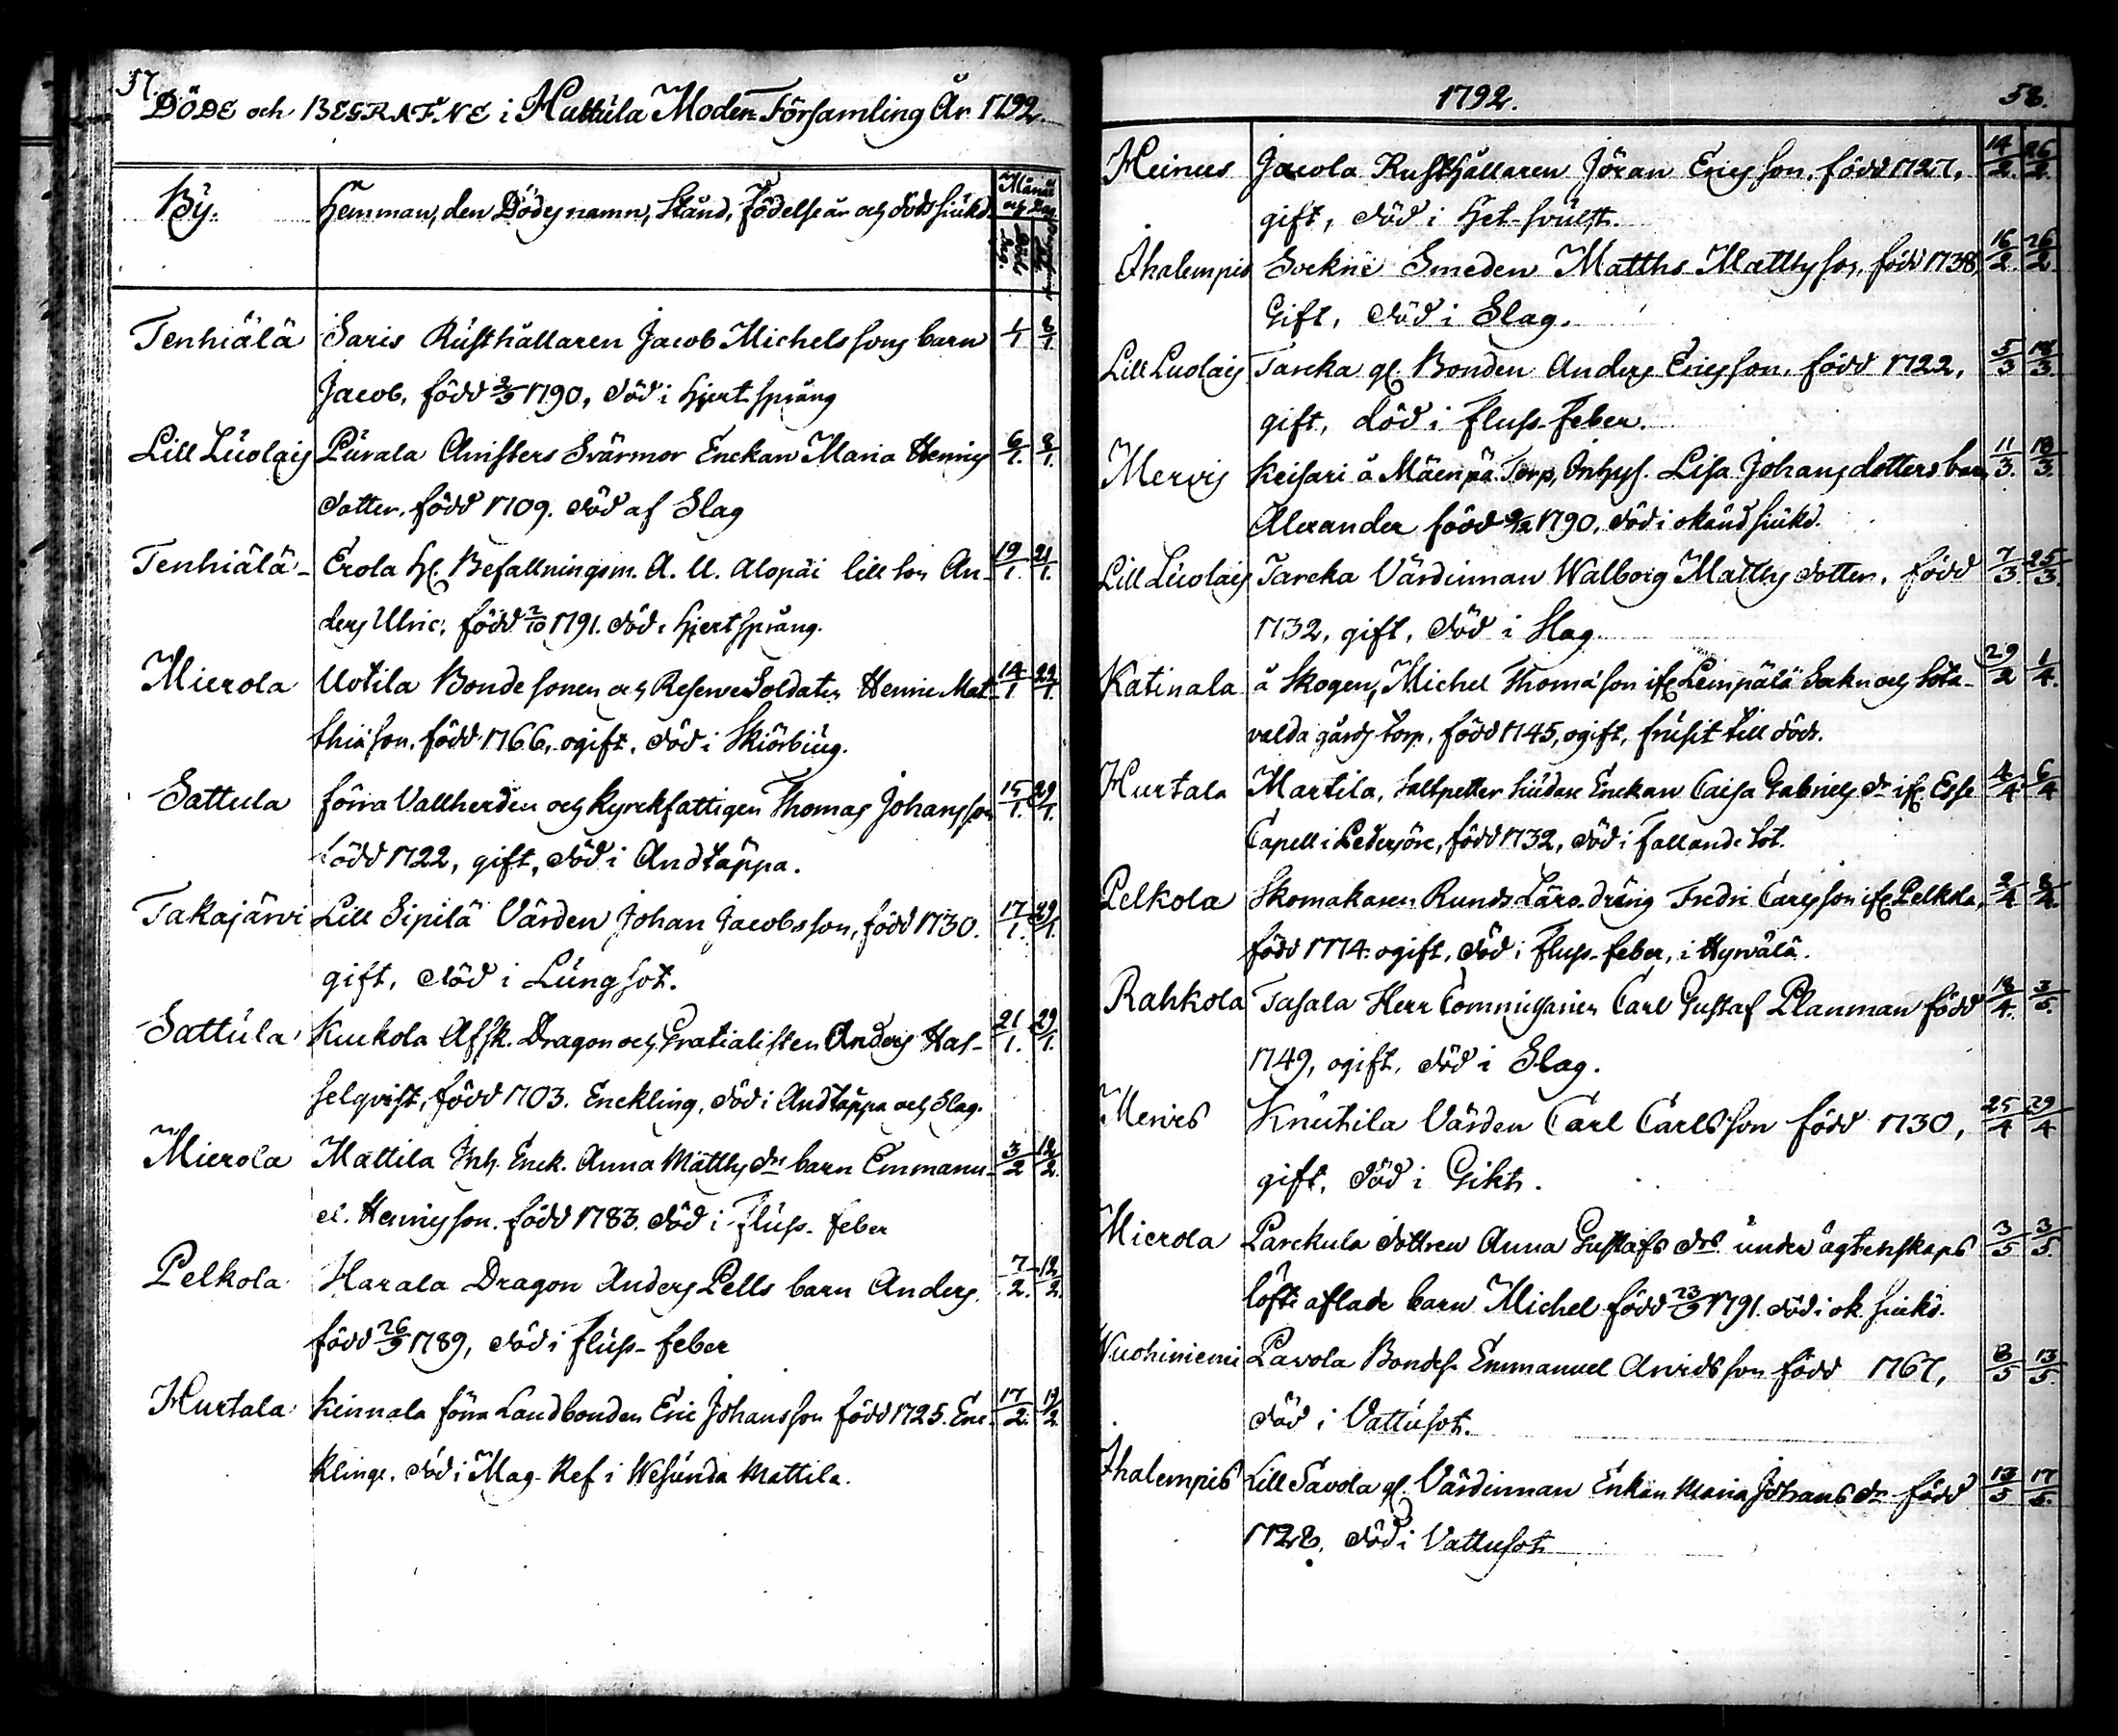 57.
DÖDE och BEGRAFNE i Hattula Moder Församling År 1792.
By. Hemman, den Dödes namn, Stånd, Födelse år och dödssiukd. Månad och Dag
Döds dag.
Tenhiälä Saris Rusthållaren Jacob Michelssons barn 1/1 8/1.
Jacob, född 2/9 1790, död i Hjertsprång
Lill Luolais Puvala Christers Svärmor Enckan Maria Henrics 6/1. 8/1.
dotter, född 1709. död af Slag
Tenhiälä Erola H. Befallningsm. A. U. Alopæi lill son An- 19/1. 21/1.
ders Ulric, född 2/10 1791. död i Hjertsprång.
Mierola Uotila Bondesonen och Reserve Soldaten Henric Mat- 14/1 22/1.
thisson, född 1766, ogift, död i Skiörbiug.
Sattula förra Vallherden och kyrckfattigen Thomas Johansson 15/1. 29/1.
född 1722, gift, död i Andtäppa.
Takajärvi Lill Sipilä Värden Johan Jacobsson, född 1730. 17/1. 29/1.
gift, död i Lungsot.
Sattula Kuckola Afsk. Dragon och Gratialisten Anders Has- 21/1. 29/1.
selqvist, född 1703. Enckling, död i Andtäppa och Slag.
Mierola Mattila Inh. Enck. Anna Matths dr barn Emmanu- 3/2 12/2.
el. Henricsson. född 1783. död i Fluss-feber
Pelkola Harala Dragon Anders Pells barn Anders. 7/2. 12/2.
född 26/9 1789, död i fluss-feber
Hurtala Keinnala förra Landbonden Eric Johansson född 1725. Enc- 17/2. 19/2.
klinge, död i Mag-Ref i Wesunda Mattila.
1792. 58.
Heinus Jacola Rusthållaren Jöran Ericsson, född 1727, 14/2. 26/2.
gift, död i Het-svulst.
Ihalempis Sockne Smeden Matths Matthsson, född 1738, 16/2. 26/2
Gift, död i Slag.
Lill Luolais Tarcka gl. Bonden Anders Ericsson, född 1722, 5/3 18/3.
gift, död i fluss-feber.
Mervis Keisari å Mäenpä Torp, Inhys. Lisa Johansdotters barn 11/3. 18/3.
Alexander född 9/12 1790, död i okänd siukd.
Lill Luolais Tarcka Värdinnan Walborg Matths dotter, född 7/3. 25/3.
1732, gift, död i Slag.
Katinala å Skogen, Michel Thomasson ifr. Lempälä Sockn och Sota- 29/2 1/4.
valda gårds torp, född 1745, ogift, frusit till döds.
Hurtala Martila, Saltpetter Siudare Enckan Caisa Gabriels dr ifr. Esse 4/4 6/4
Capell i Pedersöre, född 1732, död i fallande sot.
Pelkola Skomakaren Runds Läro dräng Fredric Carlsson ifr. Pelkola, 2/4 8/4.
född 1774. ogift, död i fluss-feber, i Hyrvälä.
Rahkola Tasala Herr Commissarien Carl Gustaf Planman född 18/4. 3/5.
1749, ogift, död i Slag.
Mervis Knutila Värden Carl Carlsson född 1730, 25/4 29/4
gift, död i Gikt.
Mierola Parckula dottren Anna Gustafs drs under ägtenskaps 3/5 3/5.
löfte aflade barn Michel född 23/9 1791. död i ok. siukd.
Wuohiniemi Pavola Bondes. Emmanuel Arvidsson född 1767, 8/5 13/5.
död i Vattusot.
Ihalempis Lill Savola gl. Värdinnan Enkan Maria Johans dr född 13/5 17/5.
1728, död i Vattusot